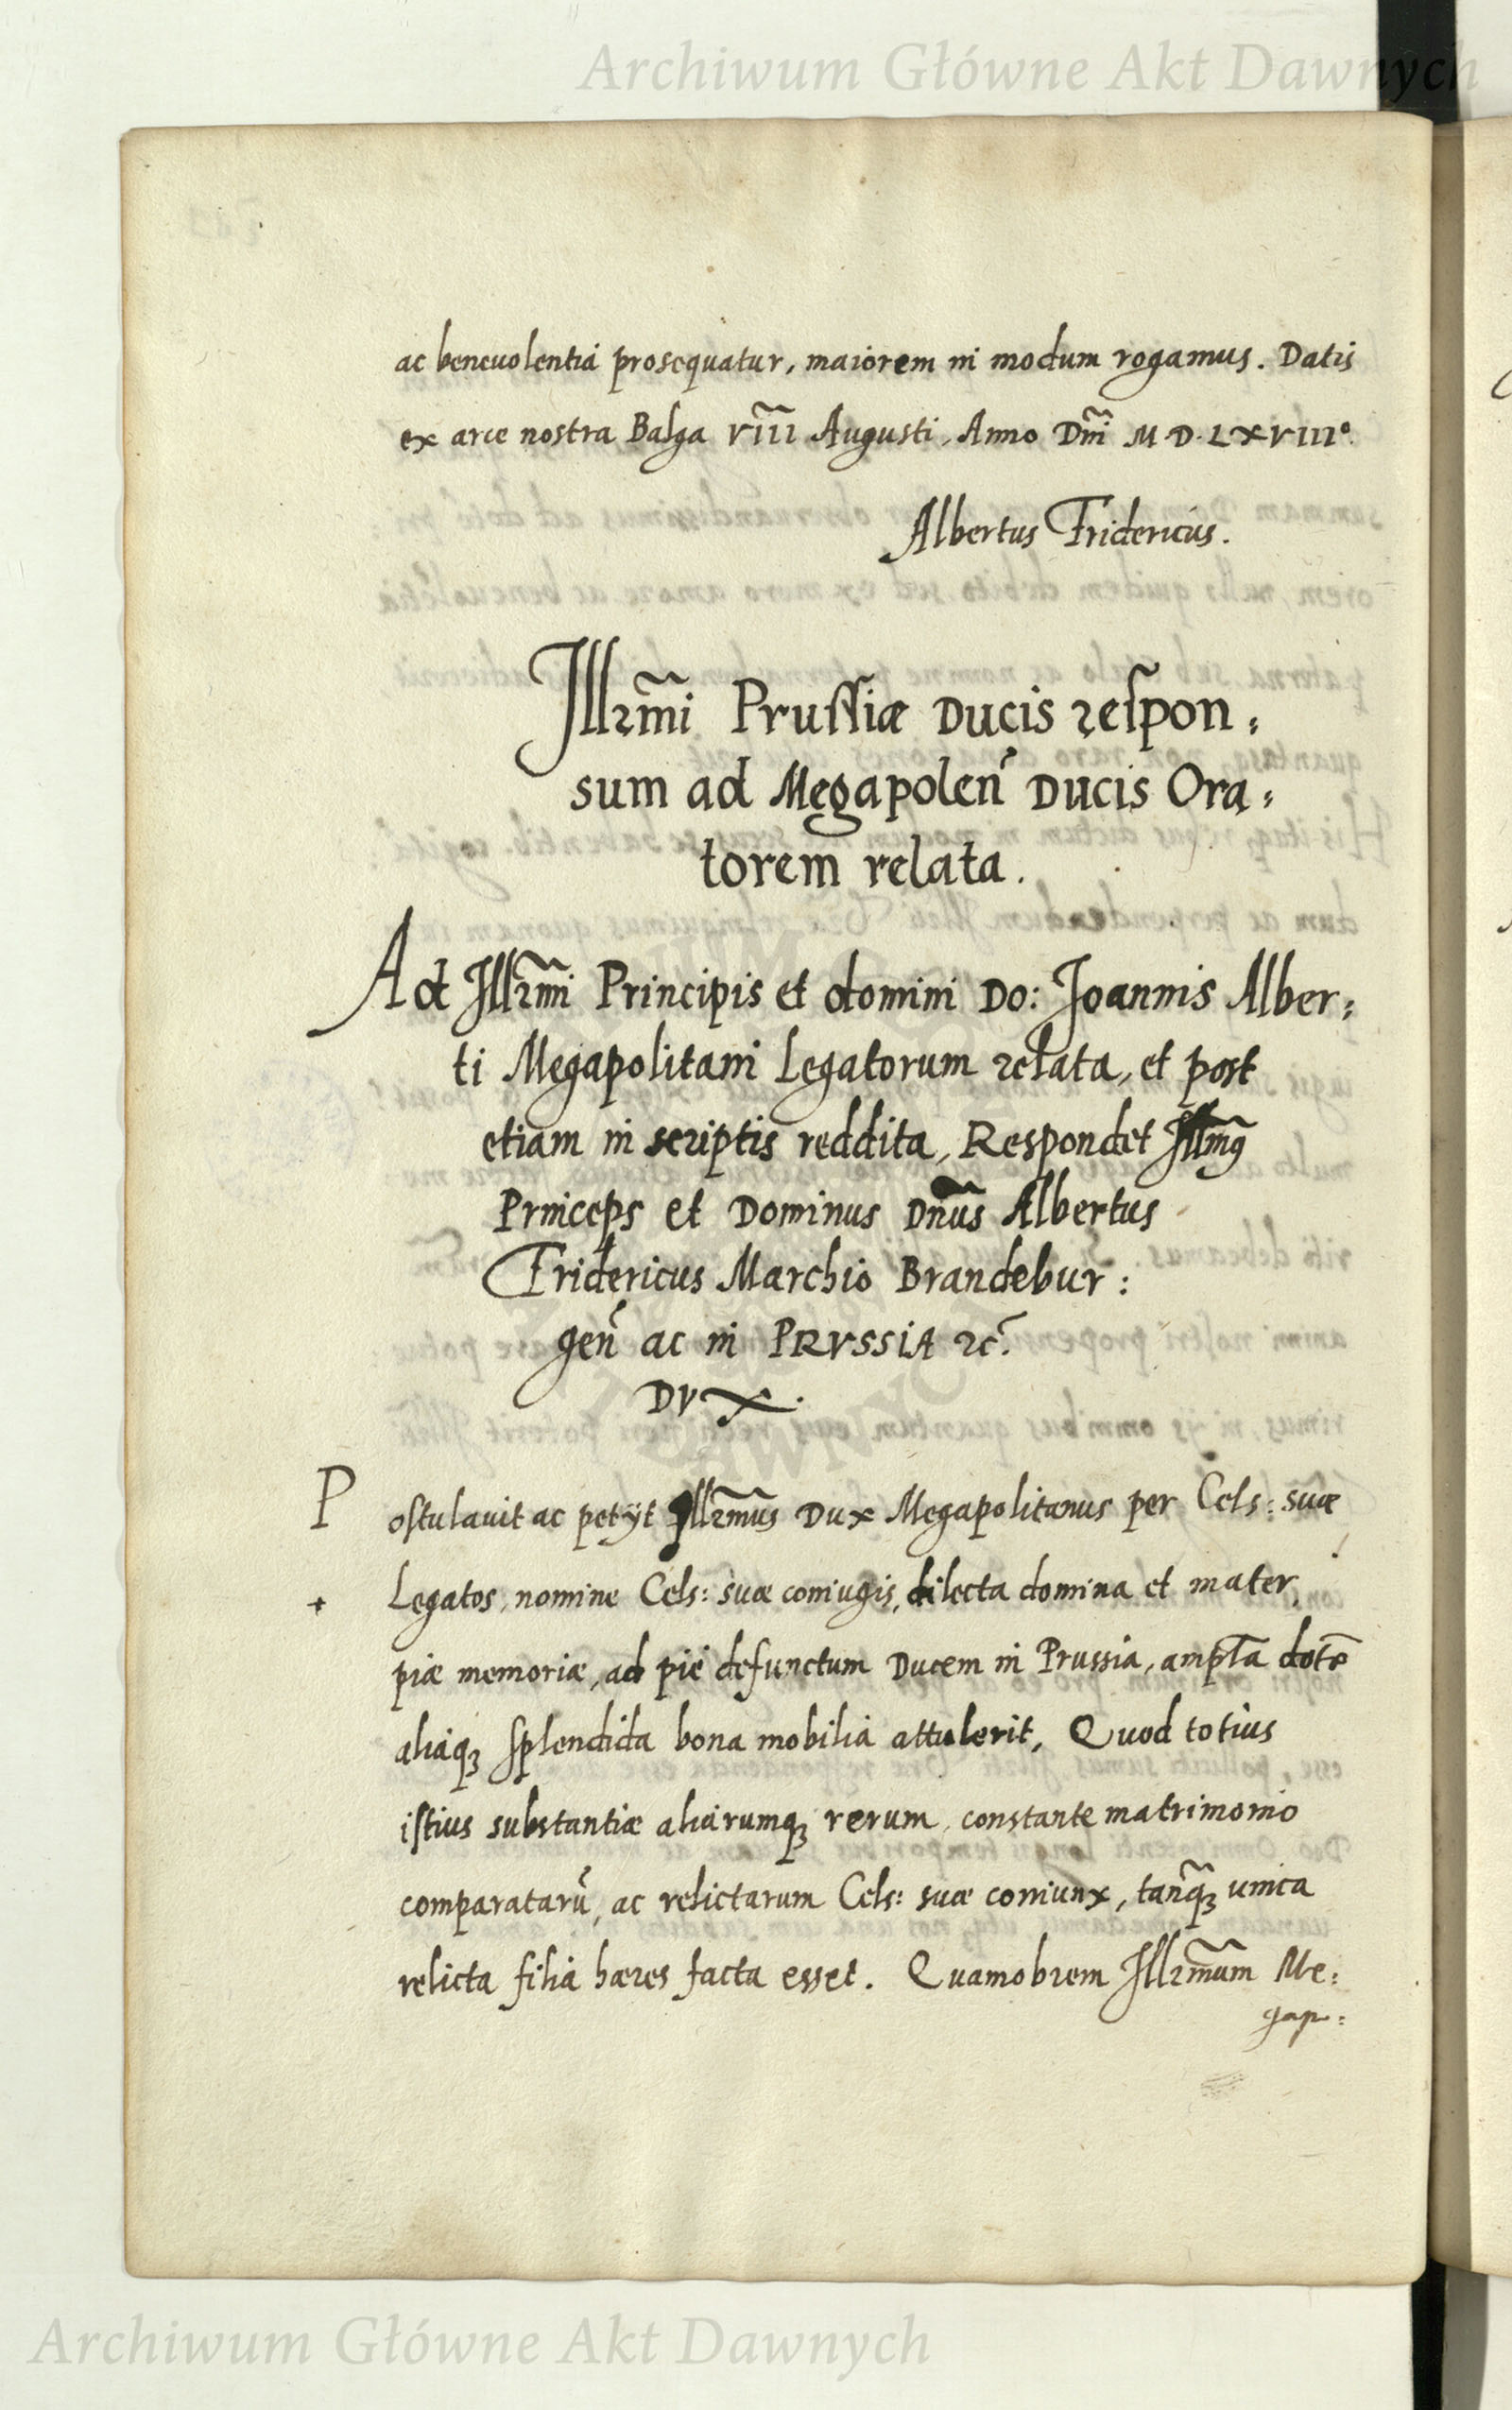 Archiwum Główne Akt Dawnych
ac beneuolentia prosequatur, maiorem in modum rogamus. Datis
ex arce nostra Balga VIII Augusti, Anno Dnĩ M·D·LXVIIIº.
Albertus Fridericus.
Illrm̃i Prussiæ Ducis respon:
sum ad Megapoleñ Ducis Ora:
torem relata.
Ad Illrm̃i Principis et domini Do: Joannis Alber:
ti Megapolitani Legatorum relata, et post
etiam in scriptis reddita, Respondet Illmq̃
Princeps et Dominus Dñus Albertus
Fridericus Marchio Brandebur:
geñ ac in PRVSSIA ꝛc̃.
DVX.
Postulauit ac petijt Illrm̃us Dux Megapolitanus per Cels: suæ
+ Legatos, nomine Cels: suæ coniugis, dilecta domina et mater,
piæ memoriæ, ad piè defunctum Ducem in Prussia, ampla dotẽ
aliaqꝫ splendida bona mobilia attulerit, Quod totius
istius substantiæ aliarumqꝫ rerum, constante matrimonio
comparatarũ, ac relictarum Cels: suæ coniunx, tanq̃ꝫ unica
relicta filia hæres facta esset. Quamobrem Illrm̃um Me:
gap:
Archiwum Główne Akt Dawnych